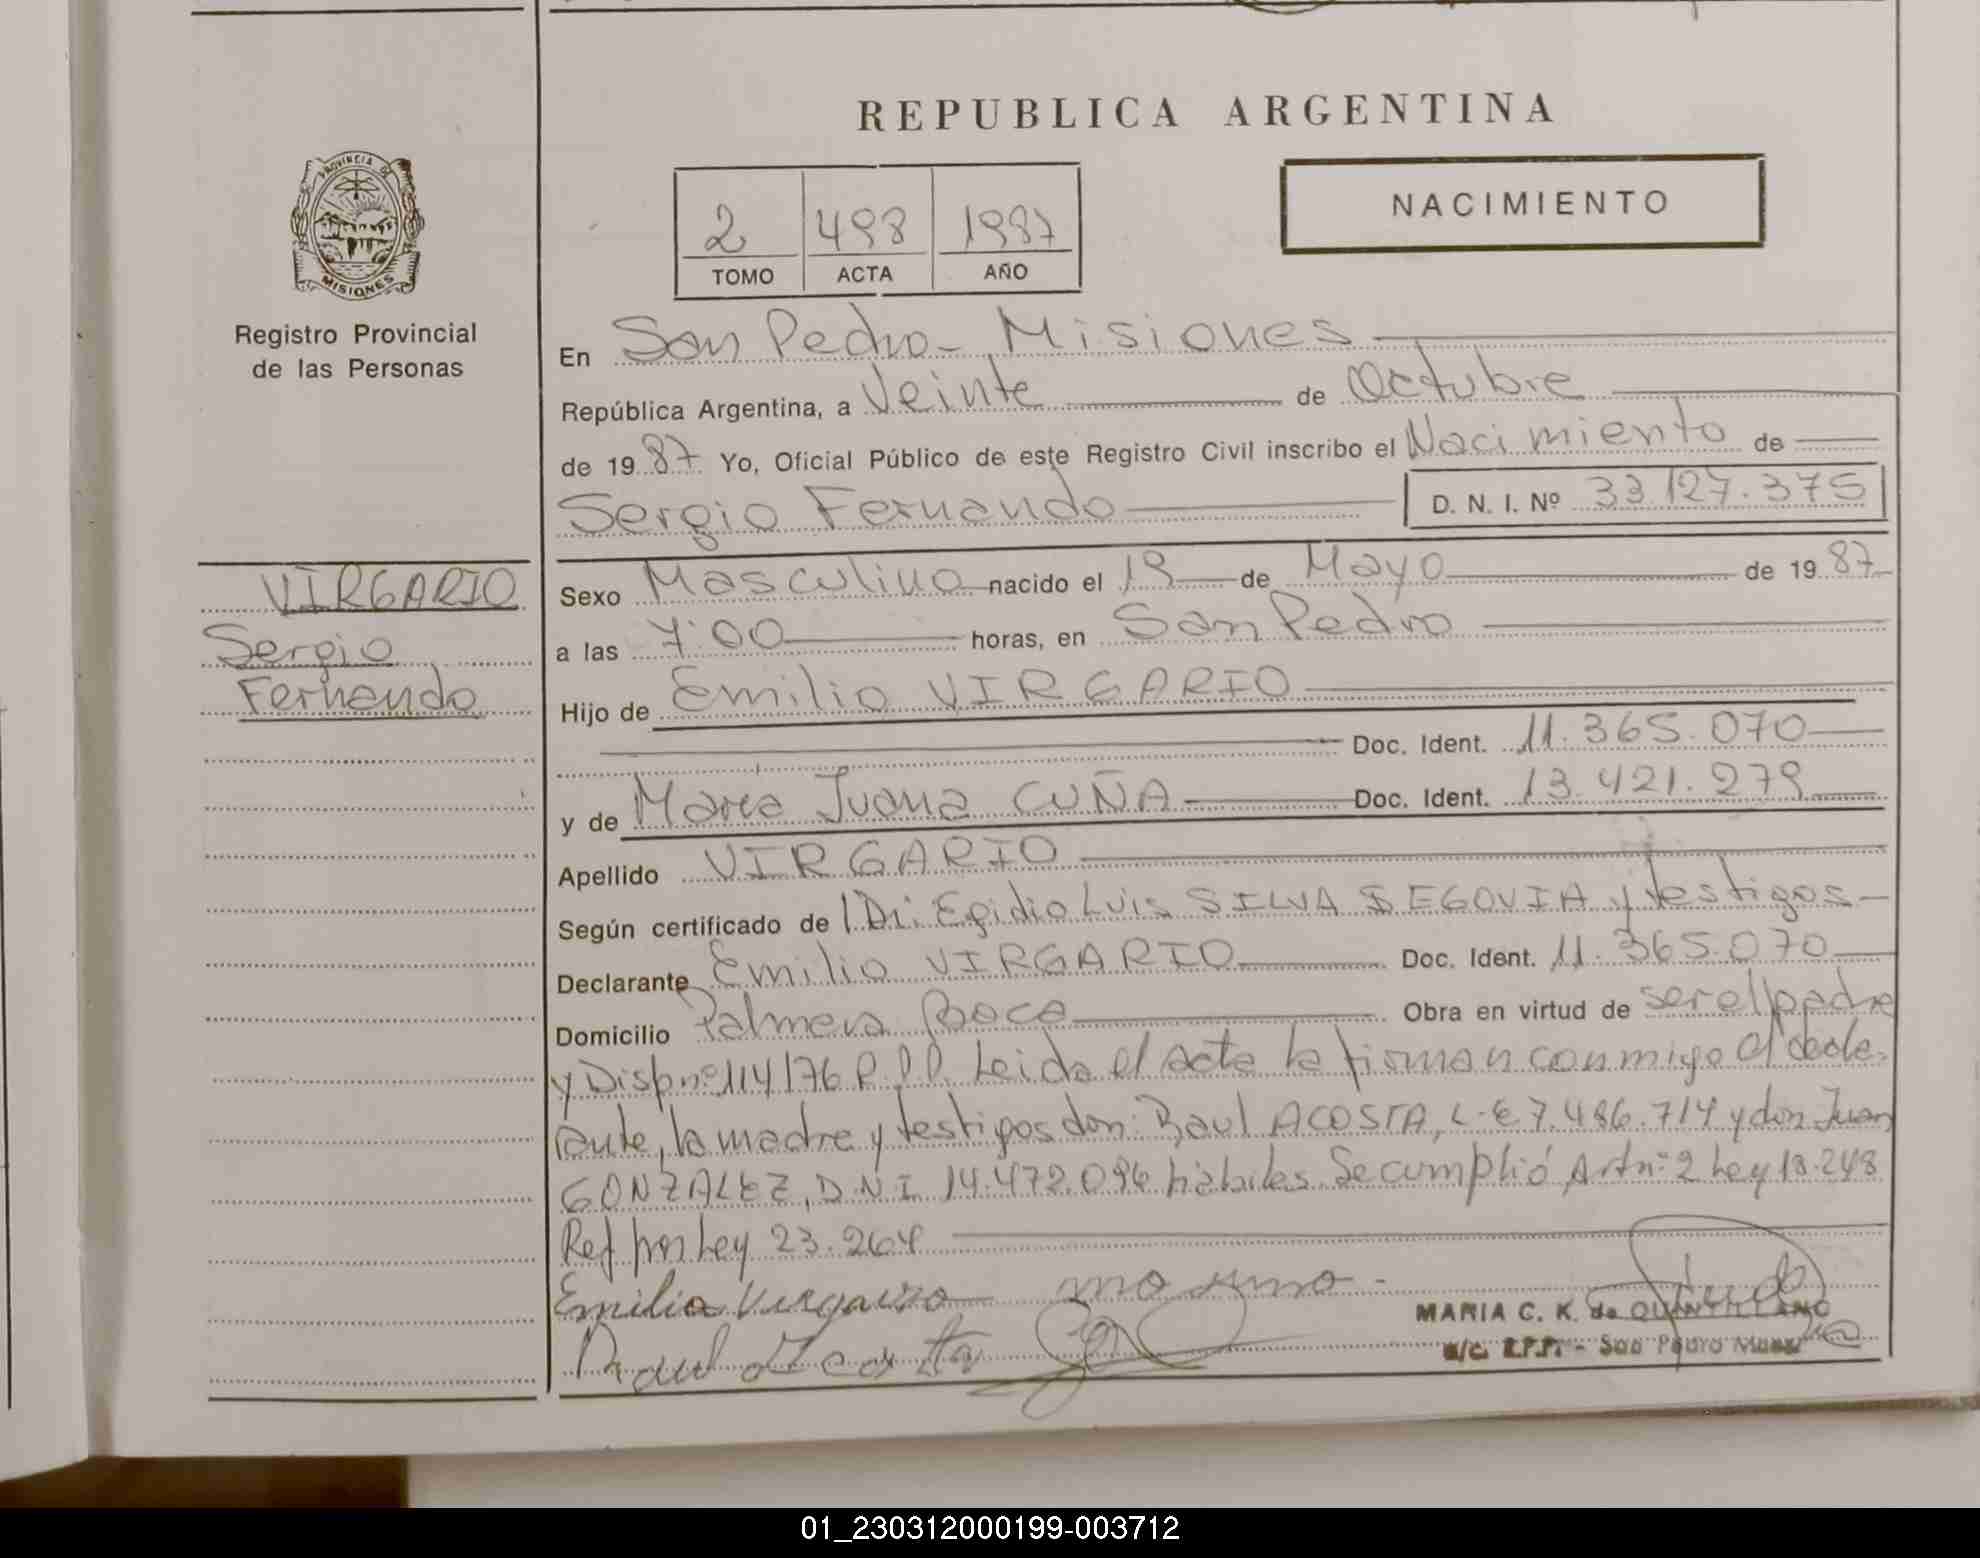 REPUBLICA ARGENTINA
PROVINCIA DE
MISIONES
Registro Provincial
de las Personas
2 498 1987
TOMO ACTA AÑO
NACIMIENTO
En San Pedro - Misiones
República Argentina, a Veinte de Octubre
de 1987 Yo, Oficial Público de este Registro Civil inscribo el Nacimiento de
Sergio Fernando D. N. I. Nº 33.127.375
VIRGARIO
Sergio
Fernando
Sexo Masculino nacido el 19 de Mayo de 1987
a las 7:00 horas, en San Pedro
Hijo de Emilio VIRGARIO
Doc. Ident. 11.365.070
y de María Juana CUÑA Doc. Ident. 13.421.279
Apellido VIRGARIO
Según certificado de Egidio Luis SILVA SEGOVIA y testigos
Declarante Emilio VIRGARIO Doc. Ident. 11.365.070
Domicilio Palmera Boca Obra en virtud de ser el padre
y Disp nº 114/76 R.P.P. Leida el acta la firman conmigo el decla-
rante, la madre y testigos don: Raul ACOSTA, L.E 7.486.714 y don Juan
GONZALEZ, D.N.I 14.472.096 hábiles. Se cumplió Art nº 2 Ley 18.248
Ref por Ley 23.264
Emilio Virgario
Raul Acosta
MARIA C. K. de QUINTILLANO
a/c R.P.P. - San Pedro
01_230312000199-003712